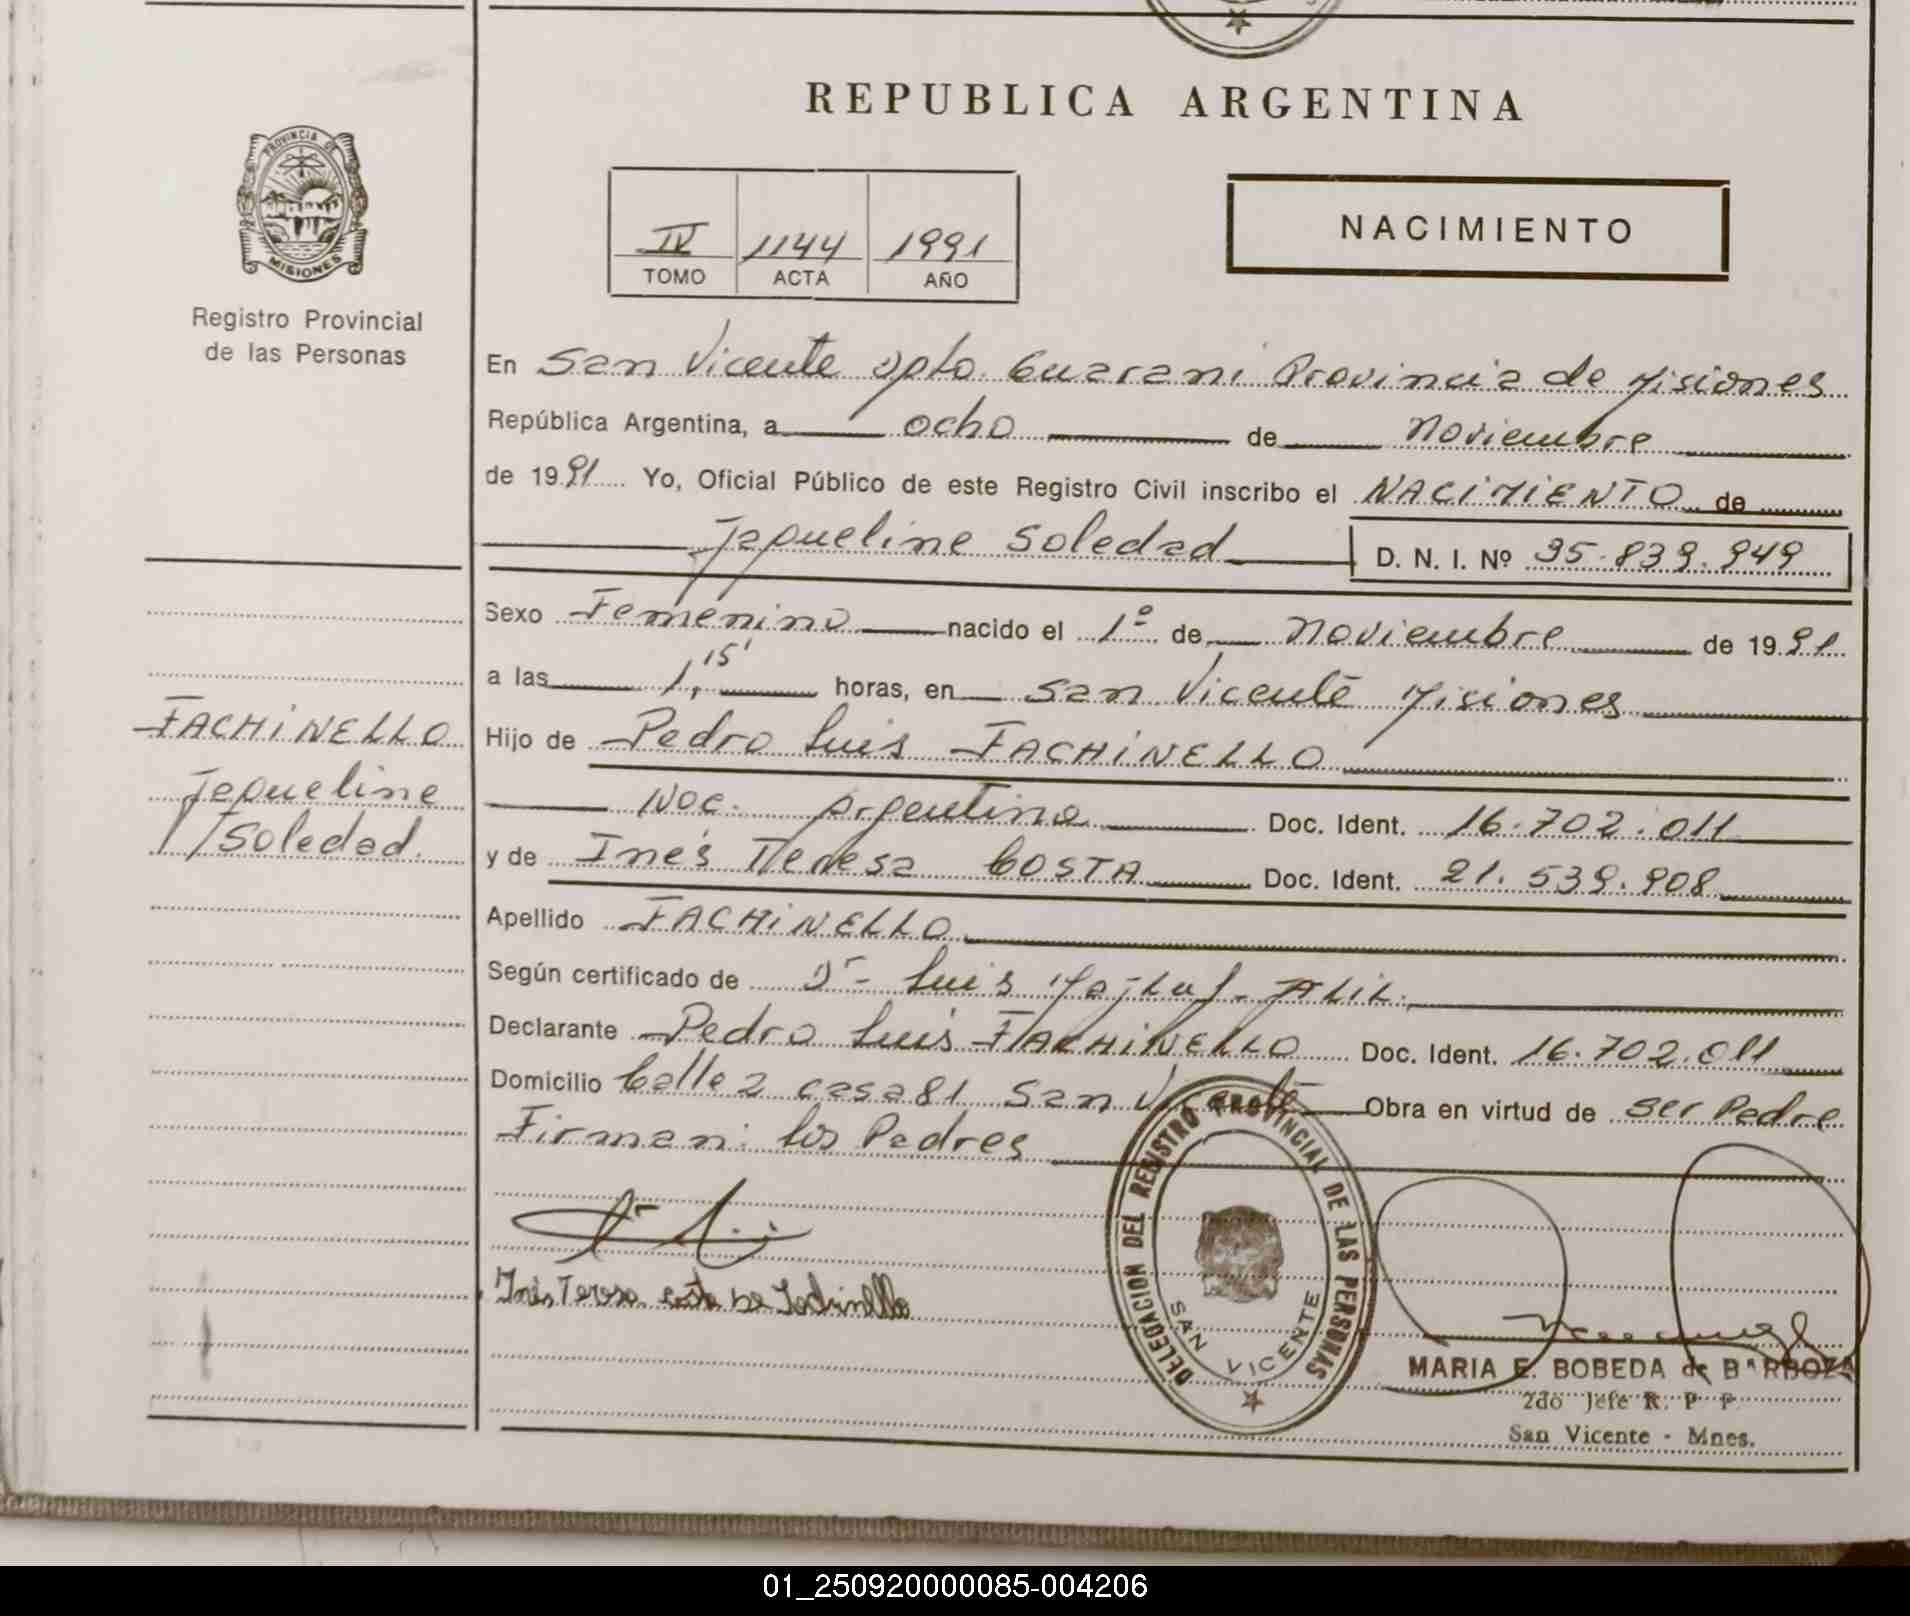 REPUBLICA ARGENTINA
PROVINCIA DE
MISIONES
Registro Provincial
de las Personas
IV 1144 1991
TOMO ACTA AÑO
NACIMIENTO
En San Vicente Dpto. Guarani Provincia de Misiones
República Argentina, a ocho de Noviembre
de 1991 Yo, Oficial Público de este Registro Civil inscribo el NACIMIENTO de
Jaqueline Soledad D. N. I. Nº 35.839.949
Sexo Femenino nacido el 1º de Noviembre de 1991
a las 1,15' horas, en San Vicente Misiones
FACHINELLO
Jaqueline
Soledad.
Hijo de Pedro Luis FACHINELLO
Nac. Argentina Doc. Ident. 16.702.011
y de Inés Teresa COSTA Doc. Ident. 21.539.908
Apellido FACHINELLO
Según certificado de Dr. Luis
Declarante Pedro Luis FACHINELLO Doc. Ident. 16.702.011
Domicilio Calle 2 casa 81 San Vicente Obra en virtud de ser Padre
Firman: los Padres
Inés Teresa Costa de Fachinello
DELEGACION DEL REGISTRO PROVINCIAL DE LAS PERSONAS
SAN VICENTE
MARIA E. BOBEDA de BARBOZA
2do Jefe R. P. P.
San Vicente - Mnes.
01_250920000085-004206